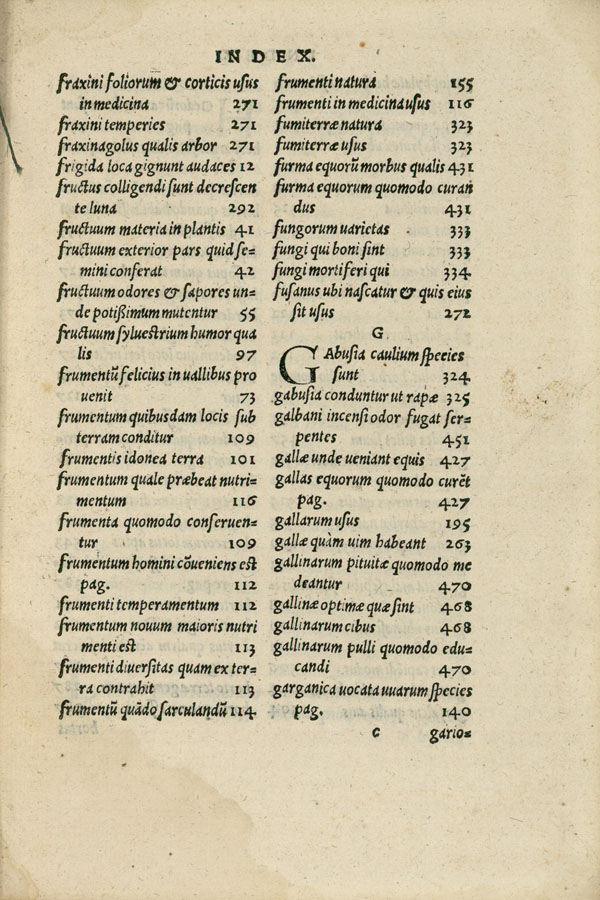 INDEX.
fraxini foliorum & corticis usus
in medicina 271
fraxini temperies 271
fraxinagolus qualis arbor 271
frigida loca gignunt audaces 12
fructus colligendi sunt decrescen
te luna 292
fructuum materia in plantis 41
fructuum exterior pars quid se=
mini conferat 42
fructuum odores & sapores un=
de potißimum mutentur 55
fructuum syluestrium humor qua
lis 97
frumentū felicius in uallibus pro
uenit 73
frumentum quibusdam locis sub
terram conditur 109
frumentis idonea terra 101
frumentum quale præbeat nutri=
mentum 116
frumenta quomodo conseruen=
tur 109
frumentum homini cōueniens est
pag. 112
frumenti temperamentum 112
frumentum nouum maioris nutri
menti est 113
frumenti diuersitas quam ex ter=
ra contrahit 113
frumentū quādo sarculandū 114
frumenti natura 155
frumenti in medicina usus 116
fumiterræ natura 323
fumiterræ usus 323
furma equorū morbus qualis 431
furma equorum quomodo curan
dus 431
fungorum uarietas 333
fungi qui boni sint 333
fungi mortiferi qui 334
fusanus ubi nascatur & quis eius
sit usus 272
G
GAbusia caulium species
sunt 324
gabusia conduntur ut rapæ 325
galbani incensi odor fugat ser=
pentes 451
gallæ unde ueniant equis 427
gallas equorum quomodo curēt
pag. 427
gallarum usus 195
gallæ quàm uim habeant 263
gallinarum pituitæ quomodo me
deantur 470
gallinæ optimæ quæ sint 468
gallinarum cibus 468
gallinarum pulli quomodo edu=
candi 470
garganica uocata uuarum species
pag. 140
c gario=